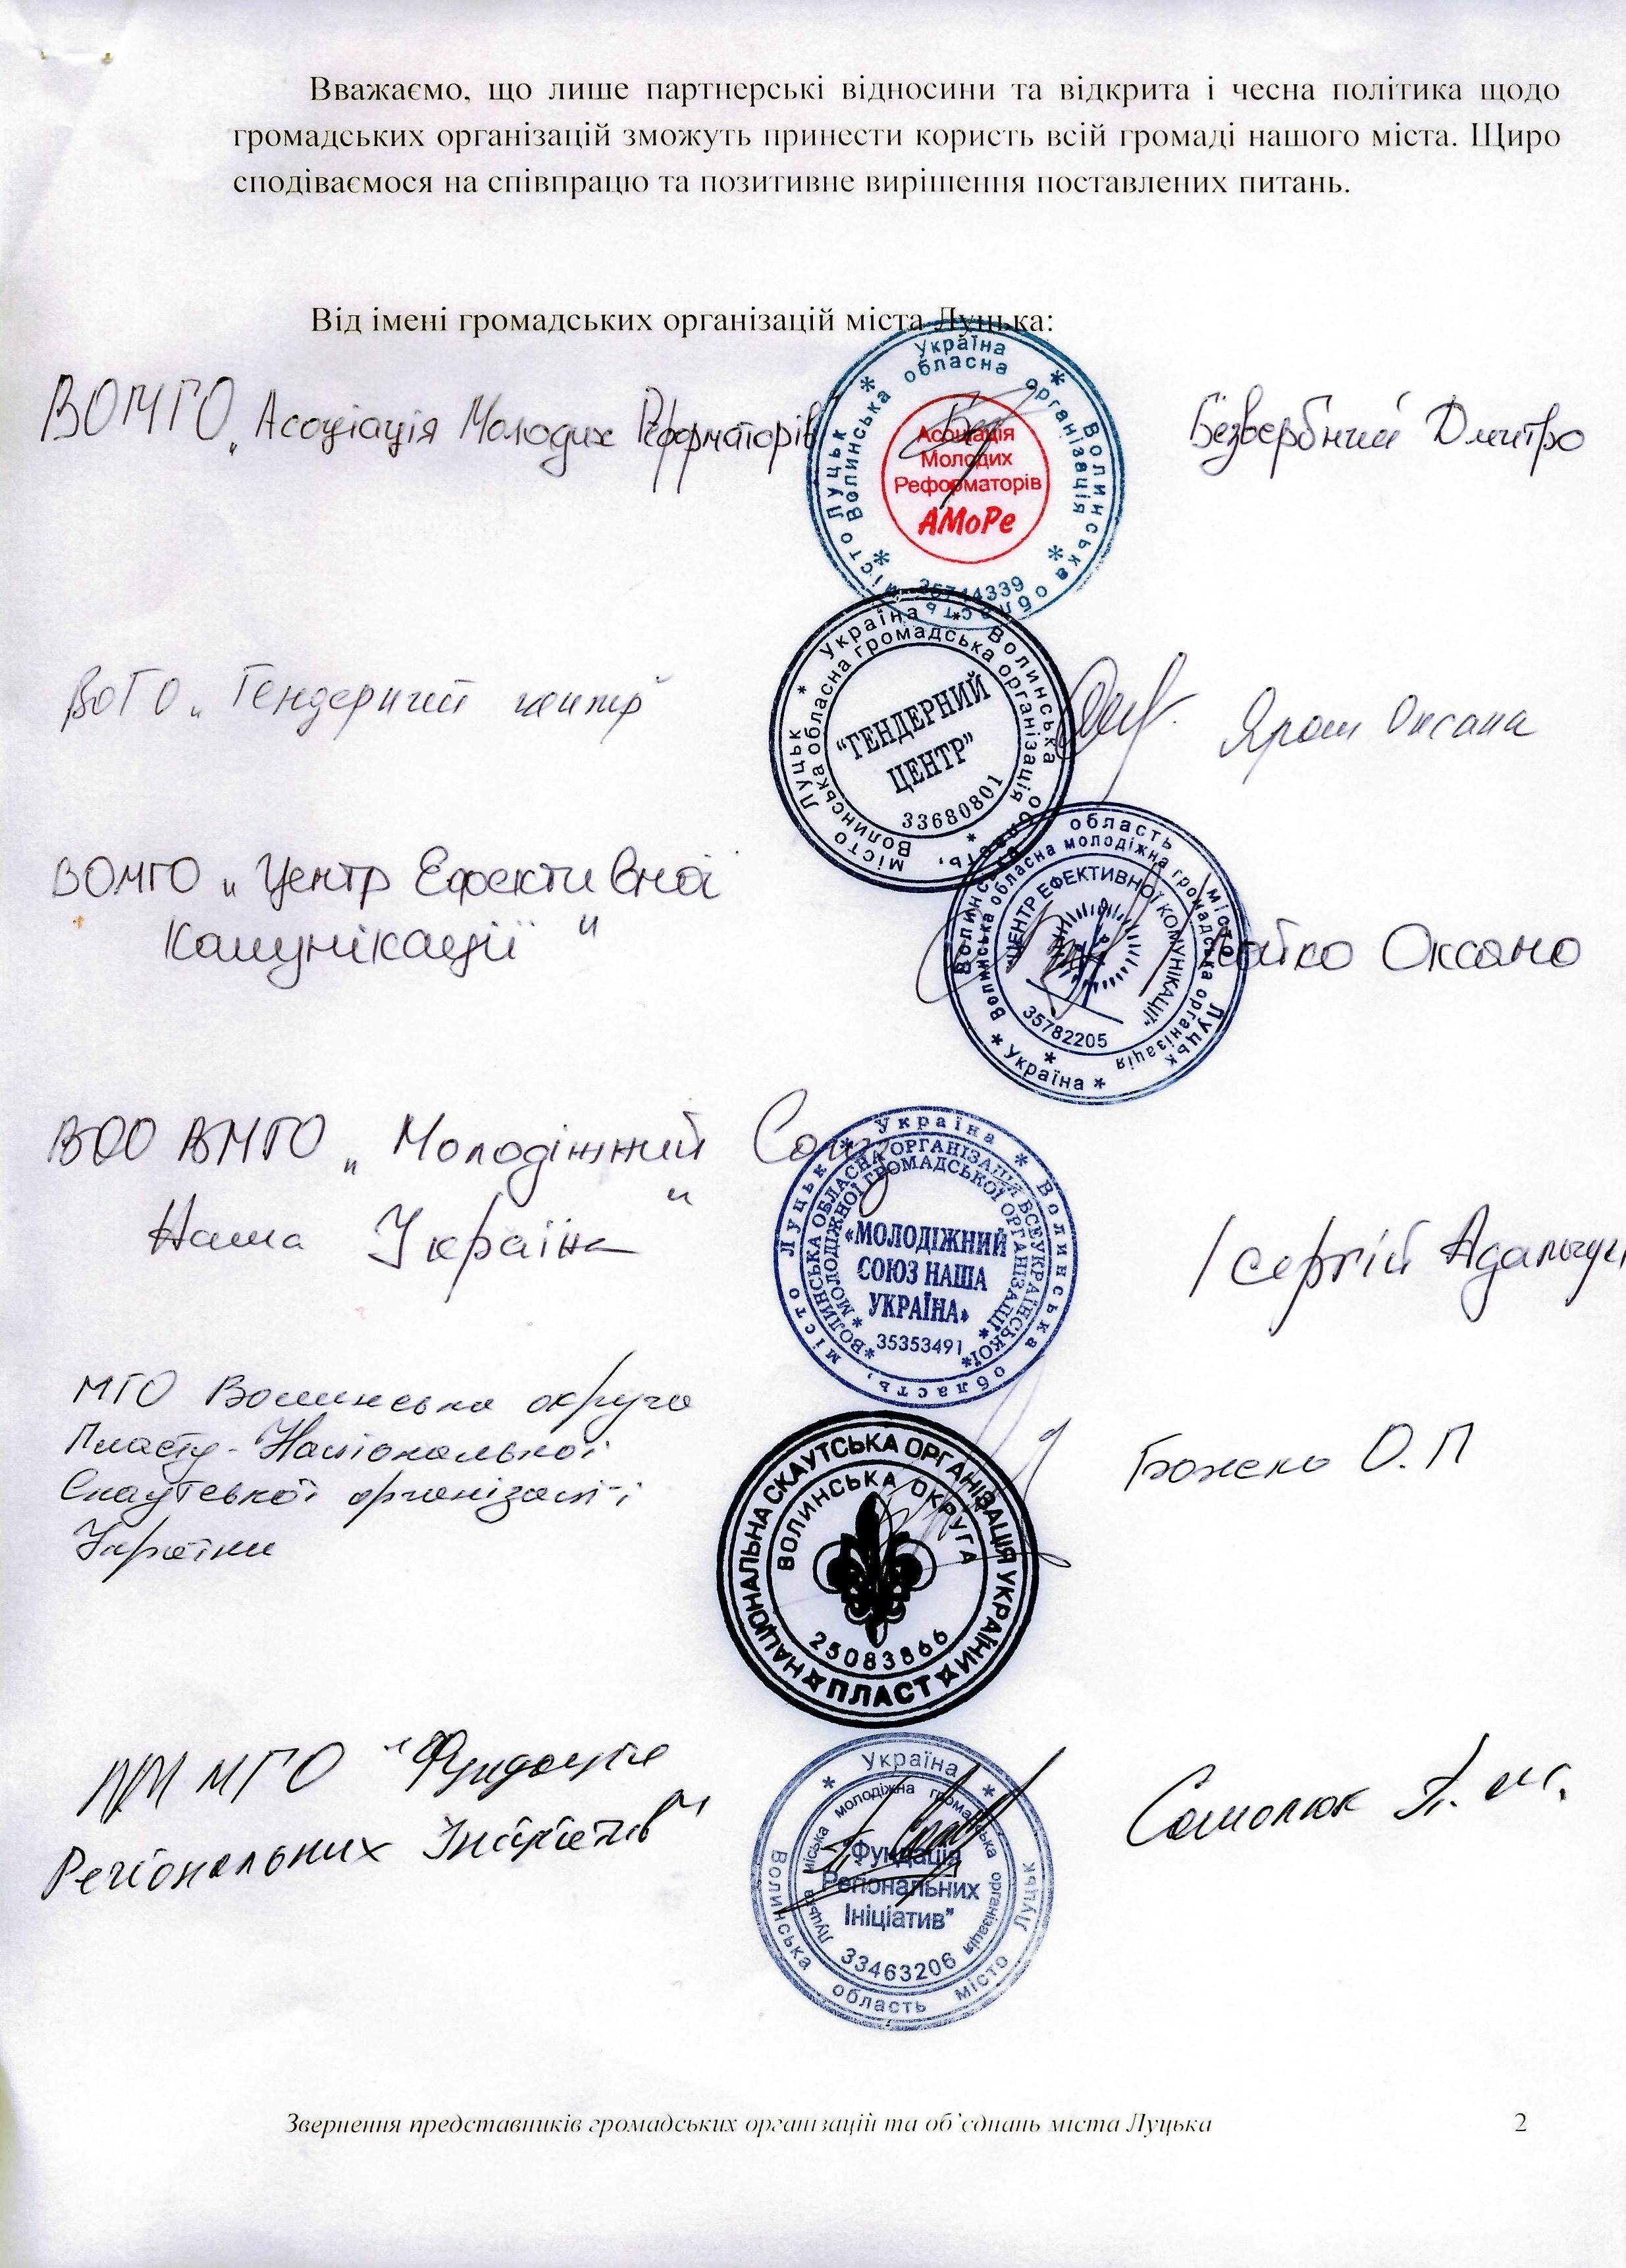 Вважаємо, що лише партнерські відносини та відкрита і чесна політика щодо
громадських організацій зможуть принести користь всій громаді нашого міста. Щиро
сподіваємося на співпрацю та позитивне вирішення поставлених питань.
Від імені громадських організацій міста Луцька:
ВОМГО „Асоціація Молодих Реформаторів"
Україна * Волинська область * місто Луцьк *
Волинська обласна організація * 35744339 *
Асоціація
Молодих
Реформаторів
АМоРе
Безвербний Дмитро
ВОГО „Гендерний центр"
Україна * Волинська область, * місто Луцьк *
Волинська обласна громадська організація
"ГЕНДЕРНИЙ
ЦЕНТР"
33680801
Ярош Оксана
ВОМГО „Центр Ефективної
Комунікації"
* Україна * Волинська область місто Луцьк
Волинська обласна молодіжна громадська організація *
"ЦЕНТР ЕФЕКТИВНОЇ КОМУНІКАЦІЇ"
35782205
Оксана
ВОО ВМГО „Молодіжний Союз
Наша Україна"
* Україна * Волинська область, місто Луцьк
* ВОЛИНСЬКА ОБЛАСНА ОРГАНІЗАЦІЯ ВСЕУКРАЇНСЬКОЇ *
* МОЛОДІЖНОЇ ГРОМАДСЬКОЇ ОРГАНІЗАЦІЇ *
«МОЛОДІЖНИЙ
СОЮЗ НАША
УКРАЇНА»
35353491
/ Сергій
МГО Волинська округа
Пласту-Національної
Скаутської організації
України
НАЦІОНАЛЬНА СКАУТСЬКА ОРГАНІЗАЦІЯ УКРАЇНИ
ВОЛИНСЬКА ОКРУГА
25083866
ПЛАСТ
Божено О.П
МГО "Фундація
Регіональних Ініціатив"
* Україна * Волинська область, місто Луцьк
Луцька міська молодіжна громадська організація
"Фундація
Регіональних
Ініціатив"
33463206
Самолюк
Звернення представників громадських організацій та об'єднань міста Луцька 2